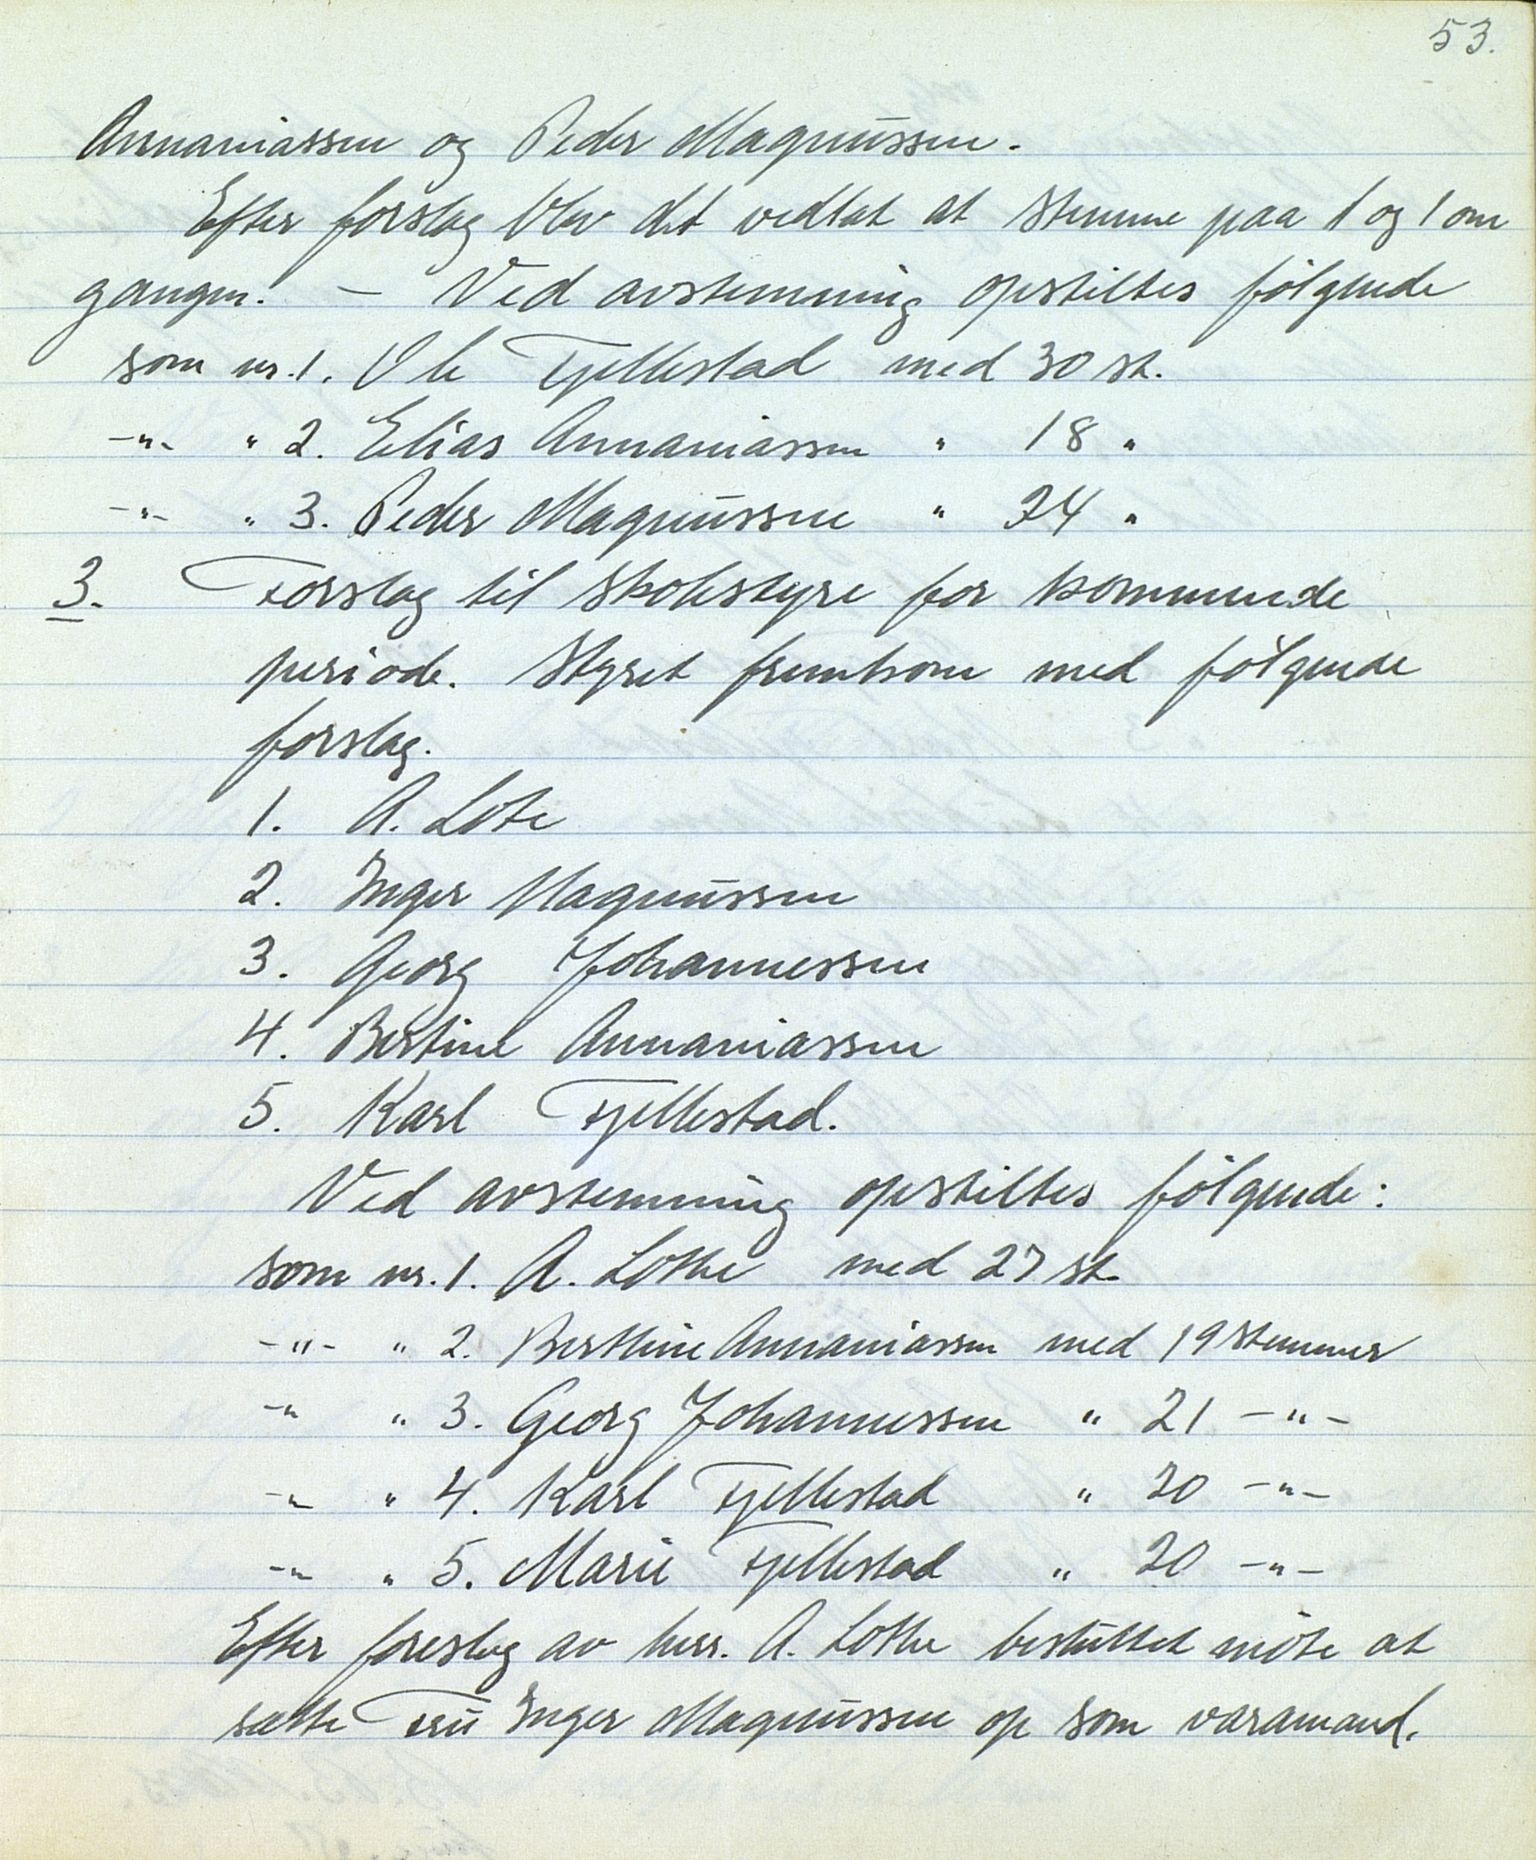 53.
Annaniassen og Peder Magnussen.
Efter forslag blev det vedtat at stemme paa 1 og 1 om
gangen. – Ved avstemning opstiltes følgende
som nr. 1. Ole Fjellestad med 30 st.
-"- " 2. Elias Annaniassen " 18 "
-"- " 3. Peder Magnussen " 24 "
3. Forslag til skolestyre for kommende
periode. Styret fremkom med følgende
forslag.
1. A. Lote
2. Inger Magnussen
3. Georg Johannessen
4. Bertine Annaniassen
5. Karl Fjellestad.
Ved avstemning opstiltes følgende:
som nr. 1. A. Lothe med 27 st.
-"- " 2. Berthine Annaniassen med 19 stemmer
-" " 3. Georg Johannessen " 21 -"-
-"- " 4. Karl Fjellestad " 20 -"-
-"- " 5. Marie Fjellestad " 20 -"-
Efter foreslag av herr. A. Lothe besluttet møte at
sætte Fru Inger Magnussen op som varamand.